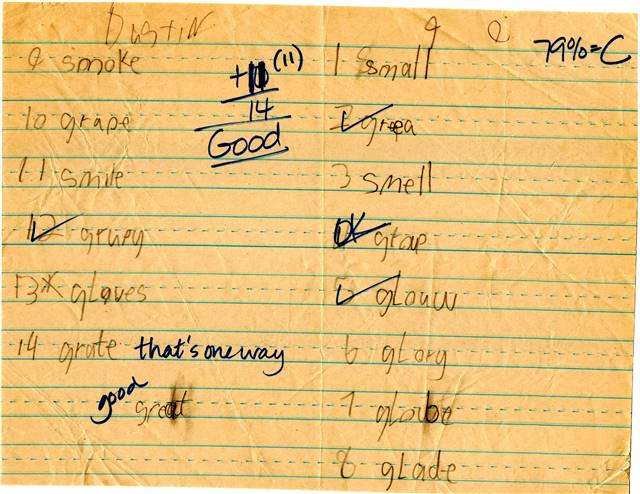 Dustin
79%=C
1 small
2 grea
3 smell
4* grap
5 glouw
6 glory
7 globe
8 glade
9 smoke
10 grape
11 smile
12 gruey
13* gloves
14 grate that's one way
good great
+10 (11)
14
Good